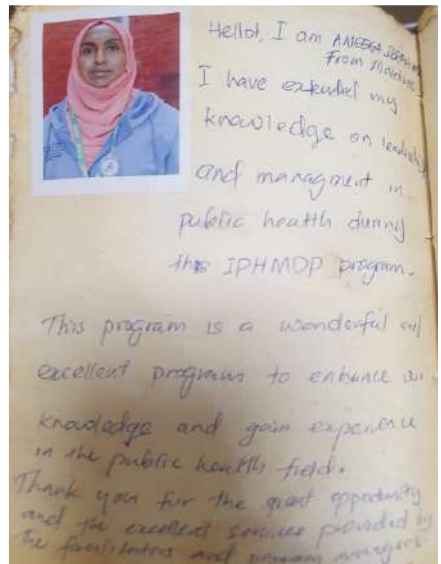 Hello!, I am ANEEGA
From Maldives
I have extended my
knowledge on leadership
and managment in
public health during
this IPHMDP program.
This program is a wonderful and
excellent programs to enhance
knowledge and gain experience
in the public health field.
Thank you for the great opportunity
and the excellent services provided by
the facilitators and program managers